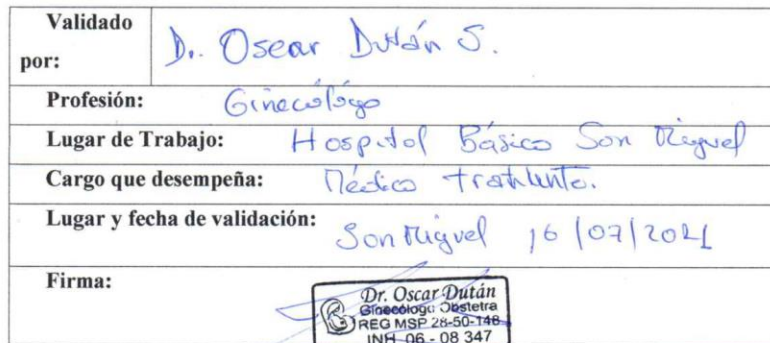 Validado por: Dr. Oscar Dután S.
Profesión: Ginecólogo
Lugar de Trabajo: Hospital Básico San Miguel
Cargo que desempeña: Médico tratante.
Lugar y fecha de validación: San Miguel 16/07/2021
Firma:
Dr. Oscar Dután
Ginecólogo Obstetra
REG MSP 28-50-146
INH 06 - 08 347